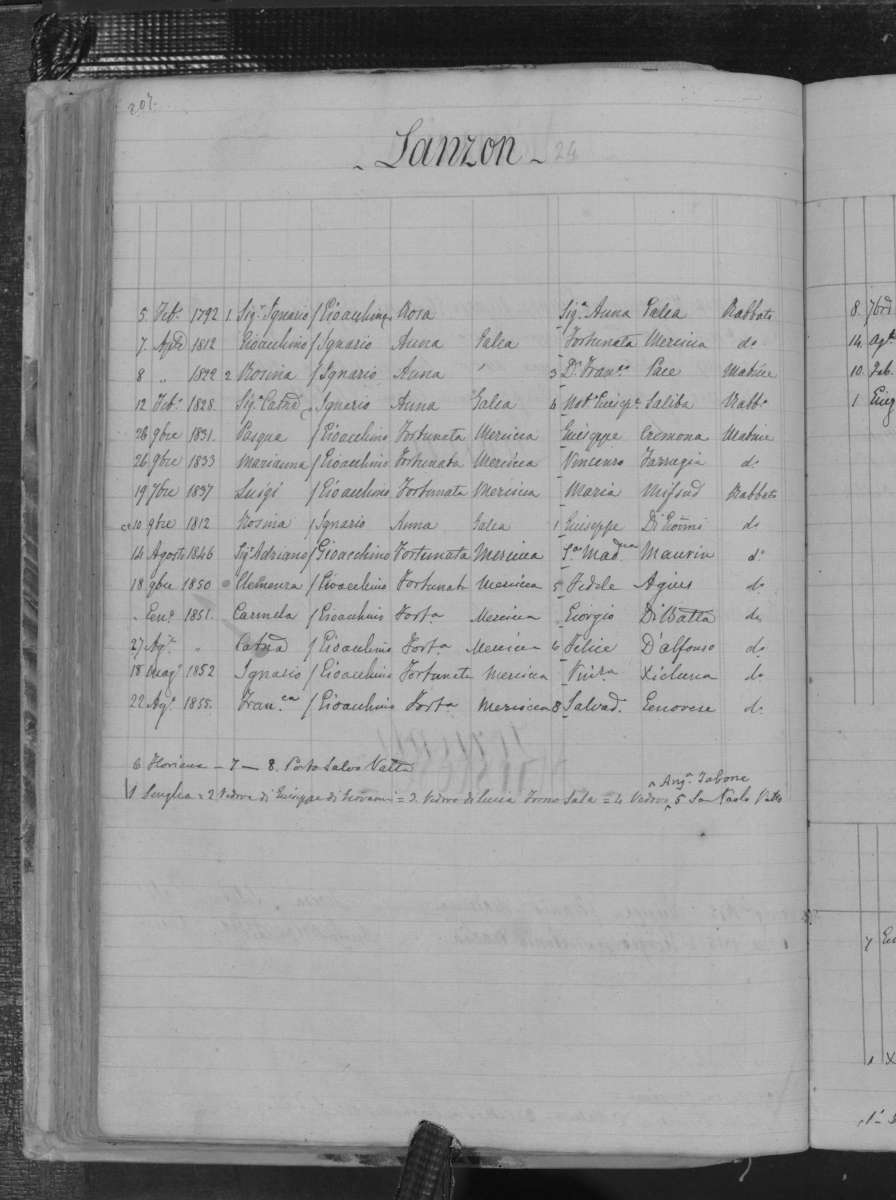 207.
Sanzon 24
5 Feb. 1792 1 Sig.r Ignazio f Gioacchino Rosa Sig.a Anna Galea Rabbato
7 Aple 1812 Gioacchino f Ignazio Anna Galea Fortunata Mericca do
8 " 1822 2 Rosina f Ignazio Anna " 3 Dr Fran.co Pace Matrice
12 Feb.o 1828 Sig.a Catna f Ignazio Anna Galea 4 Not.o Giusepe. Saliba Rabb.o
28 9bre 1831. Pasqua f Gioacchino Fortunata Mericca Giuseppe Cremona Matrice
26 9bre 1833 Marianna f Gioacchino Fortunata Mericca Vincenzo Farrugia d.o
19 7bre 1837 Luigi f Gioacchino Fortunata Mericca Maria Mifsud Rabbato
10 9bre 1812 Rosina f Ignazio Anna Galea 1 Giuseppe Di do
14 Agosto 1846 Sig. Adriano f Gioacchino Fortunata Mericca Mad.na Maurin d.o
18 9bre 1850 f Gioacchino Fortunata Mericca 5 Fedele Agius do
Gen.o 1851. Carmela f Gioacchino Forta Mericca Giorgio do
27 Ag.o " Catna f Gioacchino Fort.a Mericca 6 Felice D'alfonso do
18 Mag.o 1852 Ignazio f Gioacchino Fortunata Mericca Xicluna do
22 Ag.o 1855. Fran.ca f Gioacchino Fort.a Mericca 8 Salvad. Genovese d.o
6 Floriana - 7 - 8. Porto Salvo Valta
Ang.a Tabone
1 Senglea = 2 Vedova di Giuseppe di Giovanni = 3. Vedovo di Lucia Sala = 4 Vedovo 5 San Paolo Valta
8. 7bre
14. Ag.o
10. Feb.
1 Giug
7
1 X